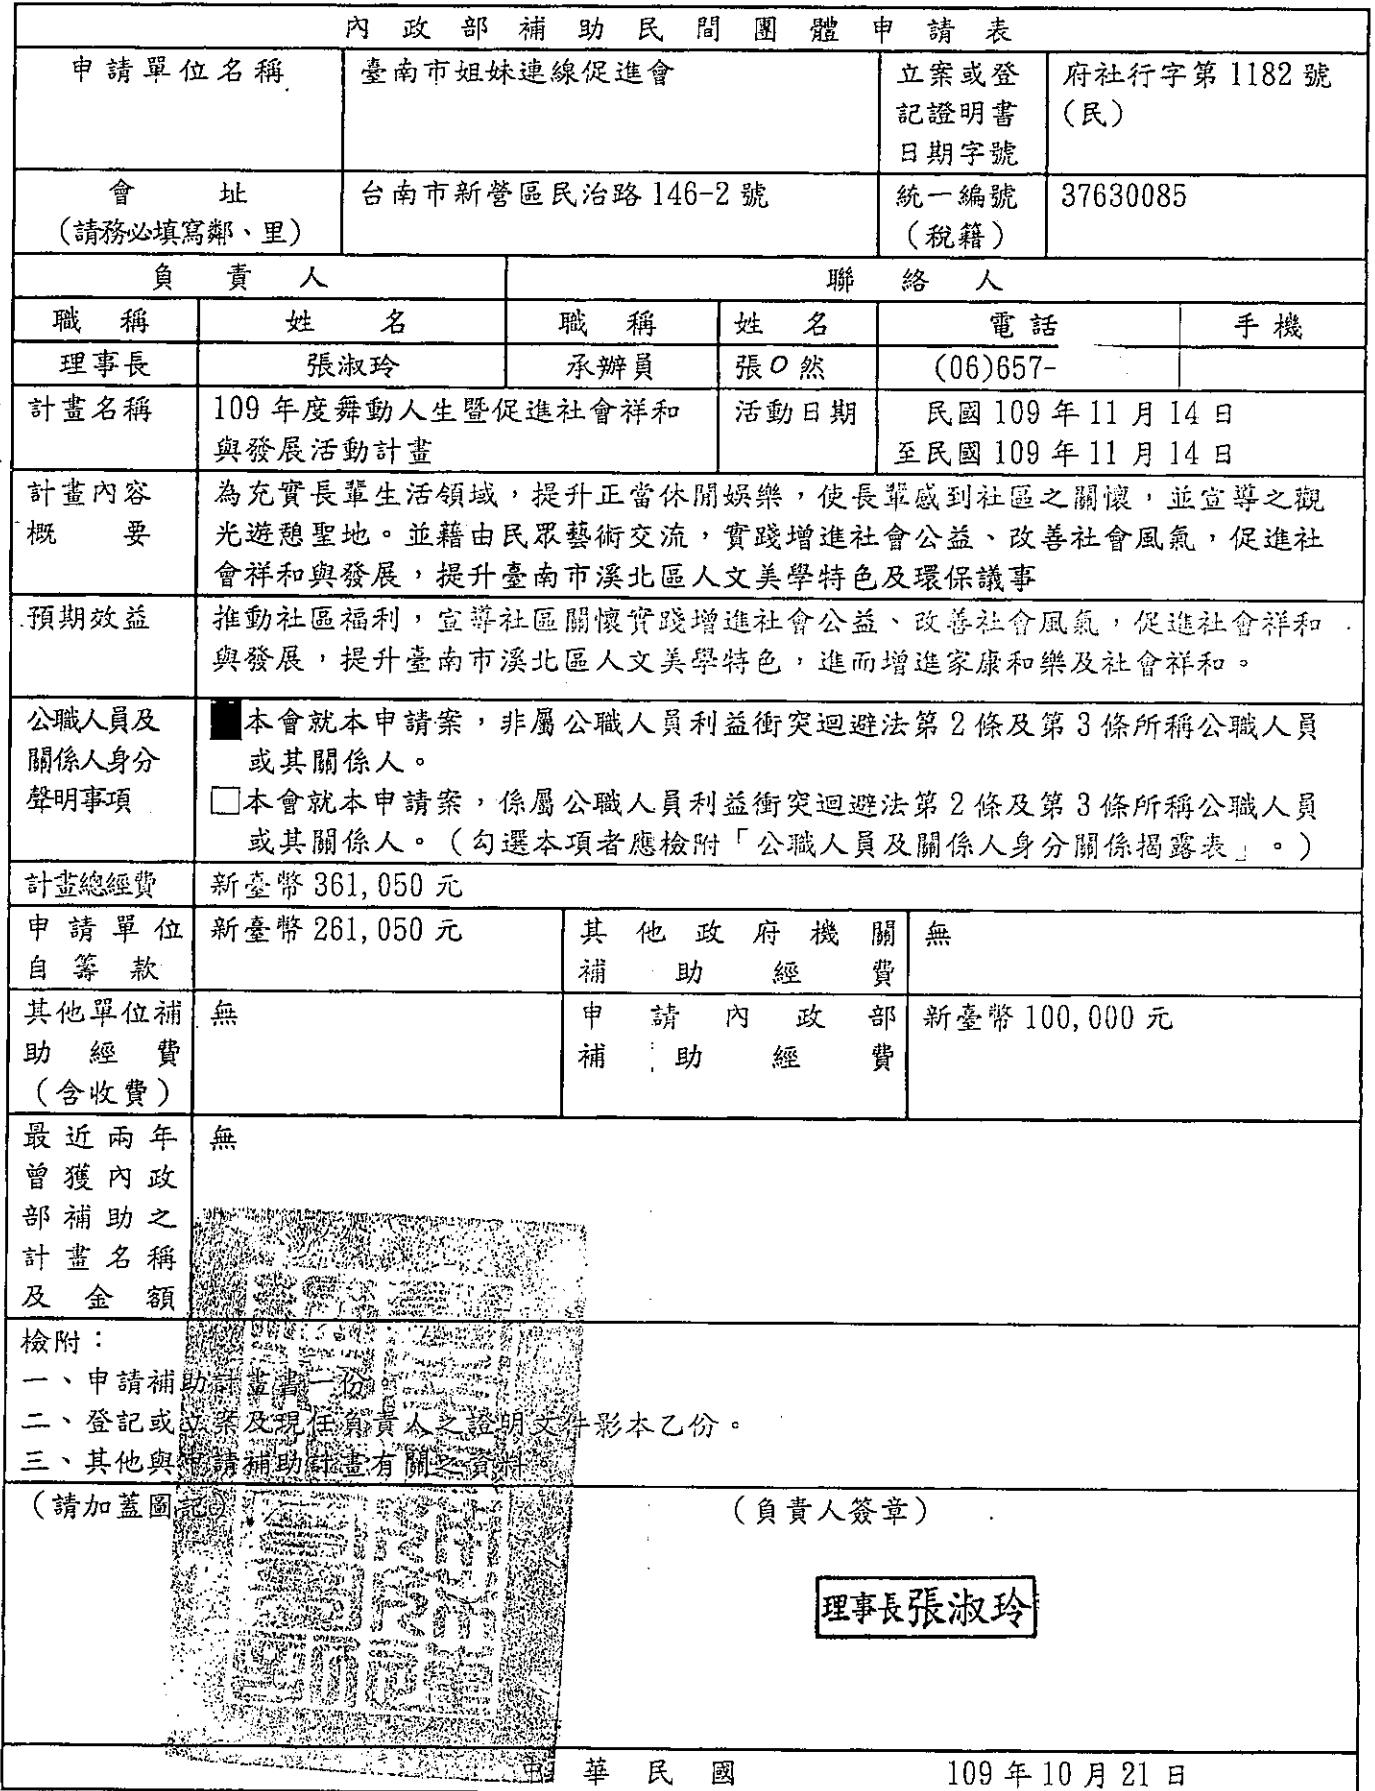 內政部補助民間團體申請表
申請單位名稱
臺南市姐妹連線促進會
立案或登
記證明書
日期字號
府社行字第 1182 號
(民)
會 址
(請務必填寫鄰、里)
台南市新營區民治路 146-2 號
統一編號
(稅籍)
37630085
負責人
聯絡人
職稱 姓名 職稱 姓名 電話 手機
理事長 張淑玲 承辦員 張O然 (06)657-
計畫名稱
109 年度舞動人生暨促進社會祥和
與發展活動計畫
活動日期
民國 109 年 11 月 14 日
至民國 109 年 11 月 14 日
計畫內容
概 要
為充實長輩生活領域,提升正當休閒娛樂,使長輩感到社區之關懷,並宣導之觀
光遊憩聖地。並藉由民眾藝術交流,實踐增進社會公益、改善社會風氣,促進社
會祥和與發展,提升臺南市溪北區人文美學特色及環保議事
預期效益
推動社區福利,宣導社區關懷實踐增進社會公益、改善社會風氣,促進社會祥和
與發展,提升臺南市溪北區人文美學特色,進而增進家康和樂及社會祥和。
公職人員及
關係人身分
聲明事項
■本會就本申請案,非屬公職人員利益衝突迴避法第 2 條及第 3 條所稱公職人員
或其關係人。
□本會就本申請案,係屬公職人員利益衝突迴避法第 2 條及第 3 條所稱公職人員
或其關係人。(勾選本項者應檢附「公職人員及關係人身分關係揭露表」。)
計畫總經費
新臺幣 361,050 元
申請單位
自籌款
新臺幣 261,050 元
其他政府機關
補助經費
無
其他單位補
助經費
(含收費)
無
申請內政部
補助經費
新臺幣 100,000 元
最近兩年
曾獲內政
部補助之
計畫名稱
及金額
無
檢附:
一、申請補助計畫書一份。
二、登記或立案及現任負責人之證明文件影本乙份。
三、其他與申請補助計畫有關之資料。
(請加蓋圖記)
(負責人簽章)
理事長張淑玲
中華民國 109 年 10 月 21 日